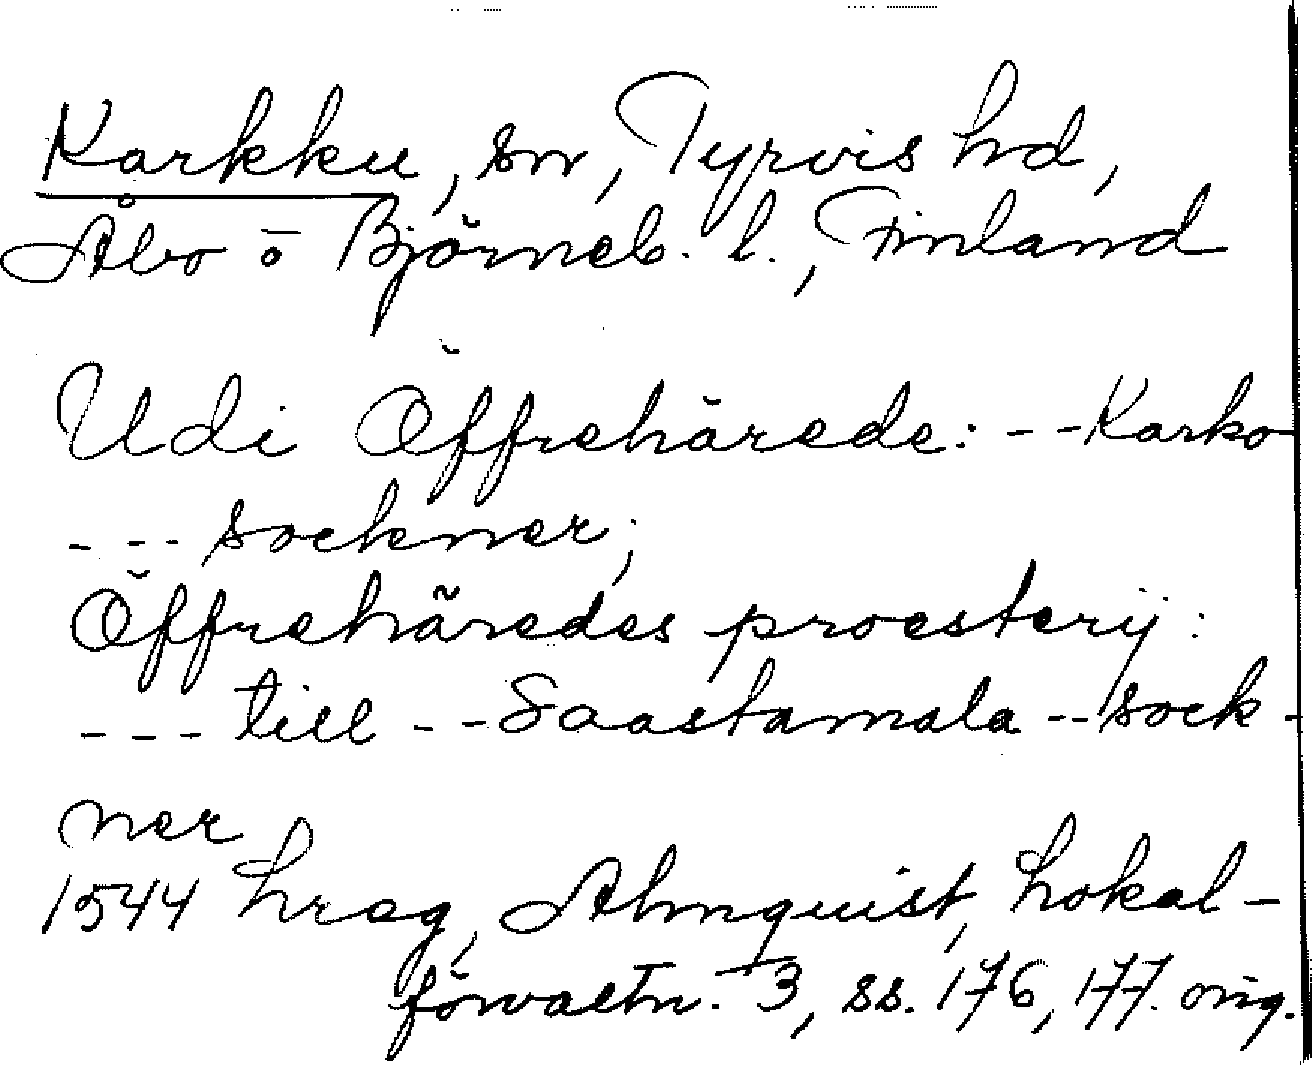 Karkku, sn, Tyrvis hd,
Åbo o Björneb. l., Finland
Udi Öffrehärede: - - Karko
- - - sockner;
Öffrehäredes proesterij:
- - - till - - Saastamala - - sock-
ner
1544 Lreg, Almquist, Lokal-
förvaltn. 3, ss. 176, 177. orig.